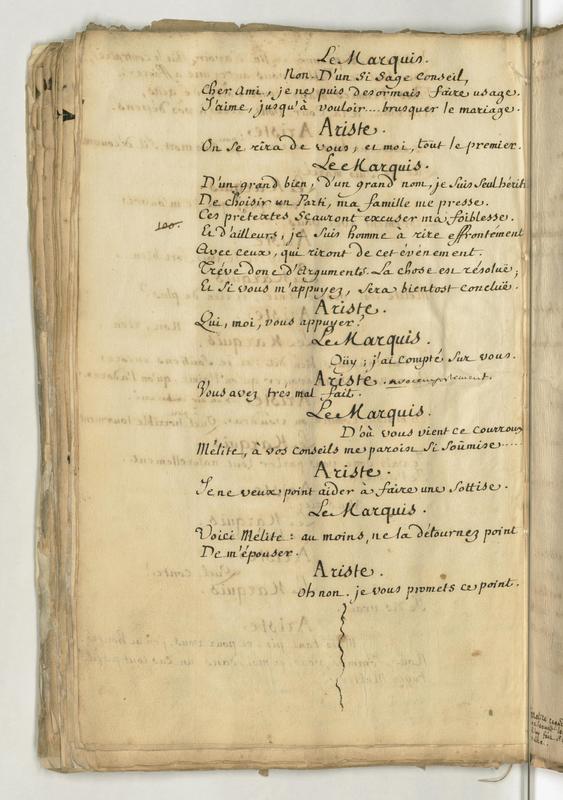 Le Marquis.
Non. D'un si sage conseil,
Cher Ami, je ne puis desormais faire usage.
J'aime, jusqu'à vouloir.... brusquer le mariage.
Ariste.
On se rira de vous; et moi, tout le premier.
Le Marquis.
D'un grand bien, d'un grand nom, je suis seul hérit
De choisir un Parti, ma famille me presse.
Ces prétextes sçauront excuser ma foiblesse.
100.
Et d'ailleurs, je suis homme à rire effrontément
Avec ceux, qui riront de cet évenement.
Tréve donc d'Arguments. La chose est résoluë;
Et si vous m'appuyez, sera bientost concluë.
Ariste.
Qui, moi, vous appuyer?
Le Marquis.
Oüy; j'ai compté sur vous.
Ariste. avec emportement.
Vous avez trés mal fait.
Le Marquis.
D'où vous vient ce courroux
Mélite, à vos conseils me paroin si soûmise.....
Ariste.
Je ne veux point aider à faire une sottise.
Le Marquis.
Voici Mélite: au moins, ne la détournez point
De m'épouser.
Ariste.
Oh non. je vous promets ce point.